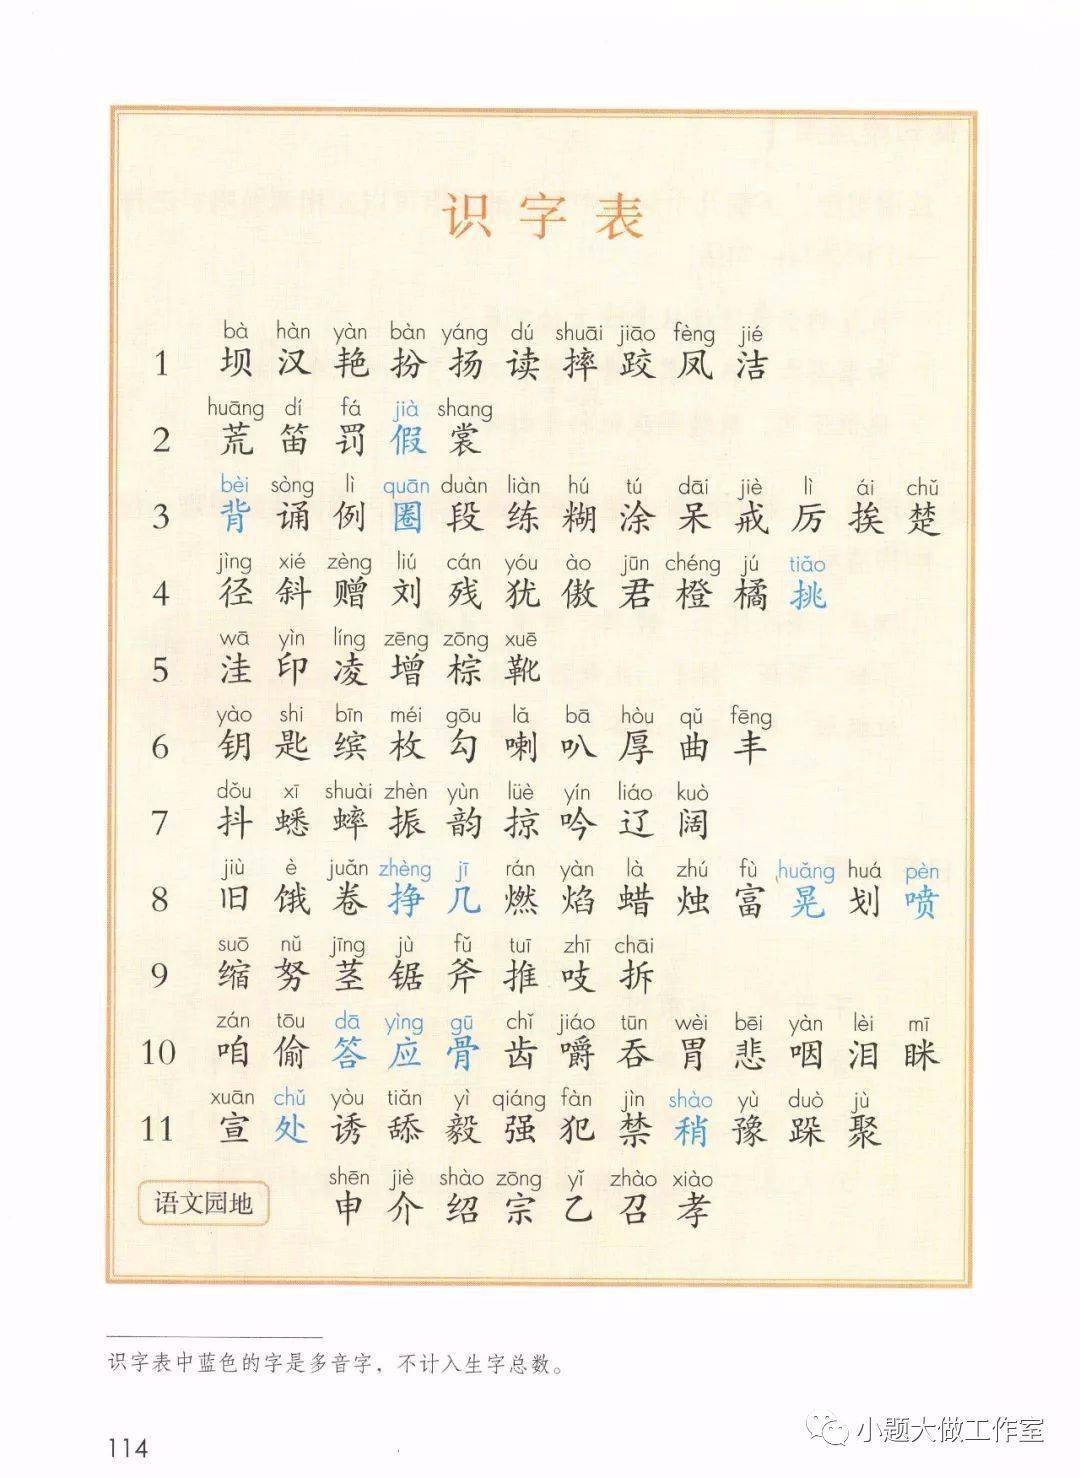 识字表
bà hàn yàn bàn yáng dú shuāi jiāo fèng jié
1 坝 汉 艳 扮 扬 读 摔 跤 凤 洁
huāng dí fá jià shang
2 荒 笛 罚 假 裳
bèi sòng lì quān duàn liàn hú tú dāi jiè lì ái chǔ
3 背 诵 例 圈 段 练 糊 涂 呆 戒 厉 挨 楚
jìng xié zèng liú cán yóu ào jūn chéng jú tiǎo
4 径 斜 赠 刘 残 犹 傲 君 橙 橘 挑
wā yìn líng zēng zōng xuē
5 洼 印 凌 增 棕 靴
yào shi bīn méi gōu lǎ bā hòu qǔ fēng
6 钥 匙 缤 枚 勾 喇 叭 厚 曲 丰
dǒu xī shuài zhèn yùn lüè yín liáo kuò
7 抖 蟋 蟀 振 韵 掠 吟 辽 阔
jiù è juǎn zhèng jī rán yàn là zhú fù huǎng huá pèn
8 旧 饿 卷 挣 几 燃 焰 蜡 烛 富 晃 划 喷
suō nǔ jīng jù fǔ tuī zhī chāi
9 缩 努 茎 锯 斧 推 吱 拆
zán tōu dā yìng gū chǐ jiáo tūn wèi bēi yàn lèi mī
10 咱 偷 答 应 骨 齿 嚼 吞 胃 悲 咽 泪 眯
xuān chǔ yòu tiǎn yì qiáng fàn jìn shào yù duò jù
11 宣 处 诱 舔 毅 强 犯 禁 稍 豫 跺 聚
shēn jiè shào zōng yǐ zhào xiào
语文园地 申 介 绍 宗 乙 召 孝
识字表中蓝色的字是多音字，不计入生字总数。
114
小题大做工作室